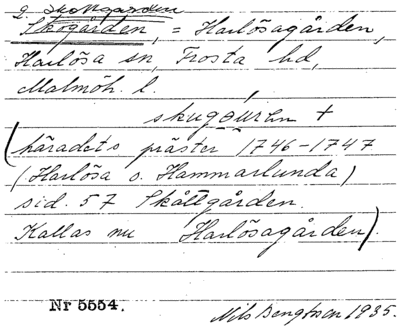 2. Skottgården
Skogården, = Harlösagården,
Harlösa sn, Frosta hd,
Malmöh. l.
skugǝurән +
(häradets präster 1746-1747
(Harlösa o. Hammarlunda)
sid. 57 Skåttgården.
Kallas nu Harlösagården).
Nr 5554. Nils Bengtsson 1935.